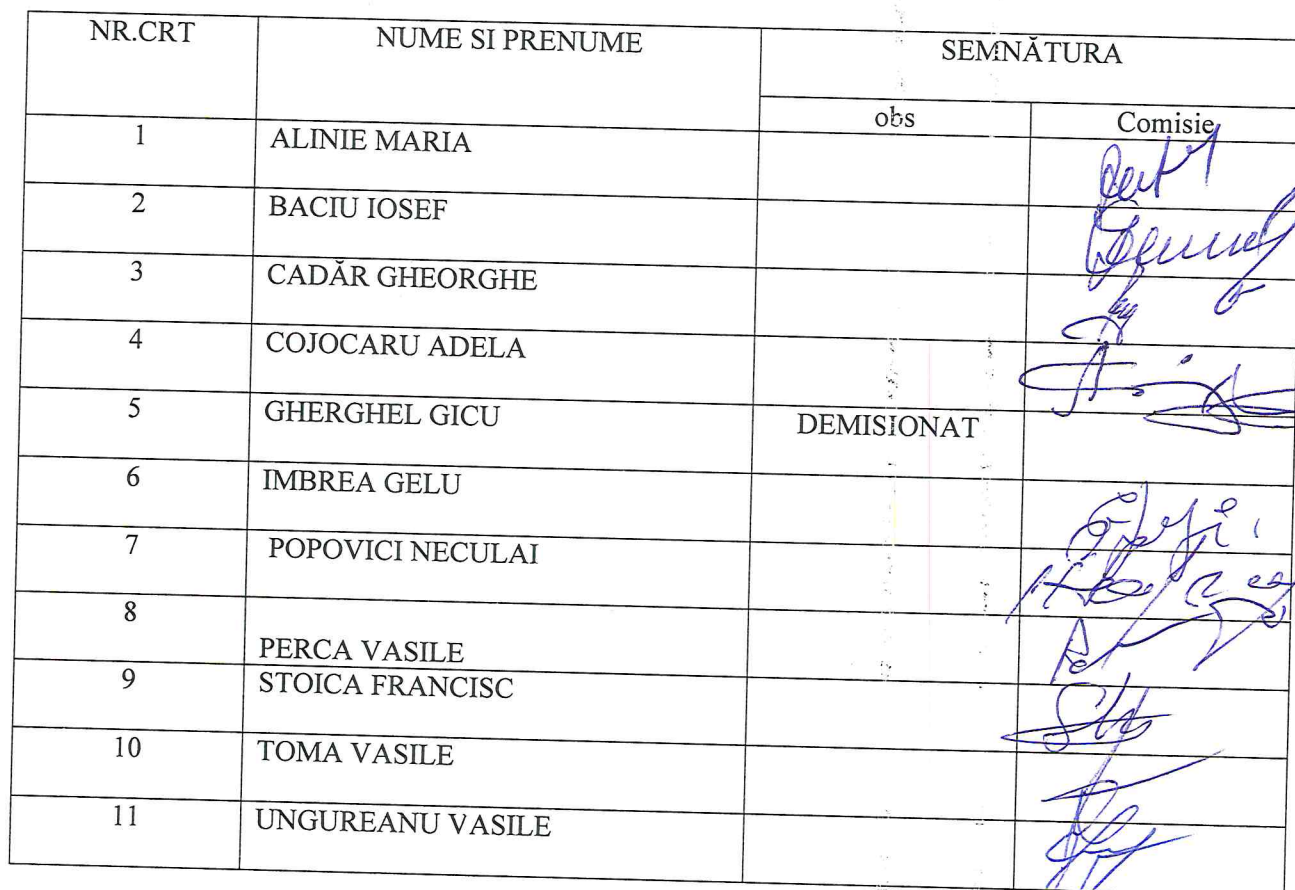 NR.CRT NUME SI PRENUME SEMNĂTURA
obs Comisie
1 ALINIE MARIA
2 BACIU IOSEF
3 CADĂR GHEORGHE
4 COJOCARU ADELA
5 GHERGHEL GICU DEMISIONAT
6 IMBREA GELU
7 POPOVICI NECULAI
8 PERCA VASILE
9 STOICA FRANCISC
10 TOMA VASILE
11 UNGUREANU VASILE